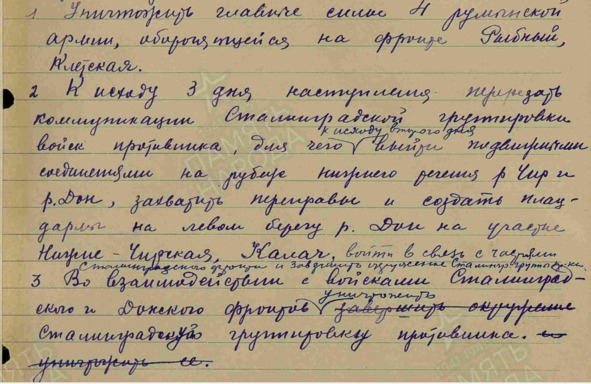 1 Уничтожить главные силы 4 румынской
армии, обороняющейся на фронте Рыбный,
Клетская.
2 К исходу 3 дня наступления перерезать
коммуникации Сталинградской группировки
к исходу второго дня
войск противника, для чего выйти подвижными
соединениями на рубеж нижнего течения р Чир и
р. Дон, захватить переправы и создать плац-
дармы на левом берегу р. Дон на участке
Нижне-Чирская, Калач. войти в связь с частями
Сталинградского фронта и завершить окружение Сталингр. группы
3 Во взаимодействии с войсками Сталинград-
уничтожить
ского и Донского фронтов завершить окружение
Сталинградскую группировку противника. и
уничтожить ее.
ПАМЯТЬ
НАРОДА
ПАМЯТЬ